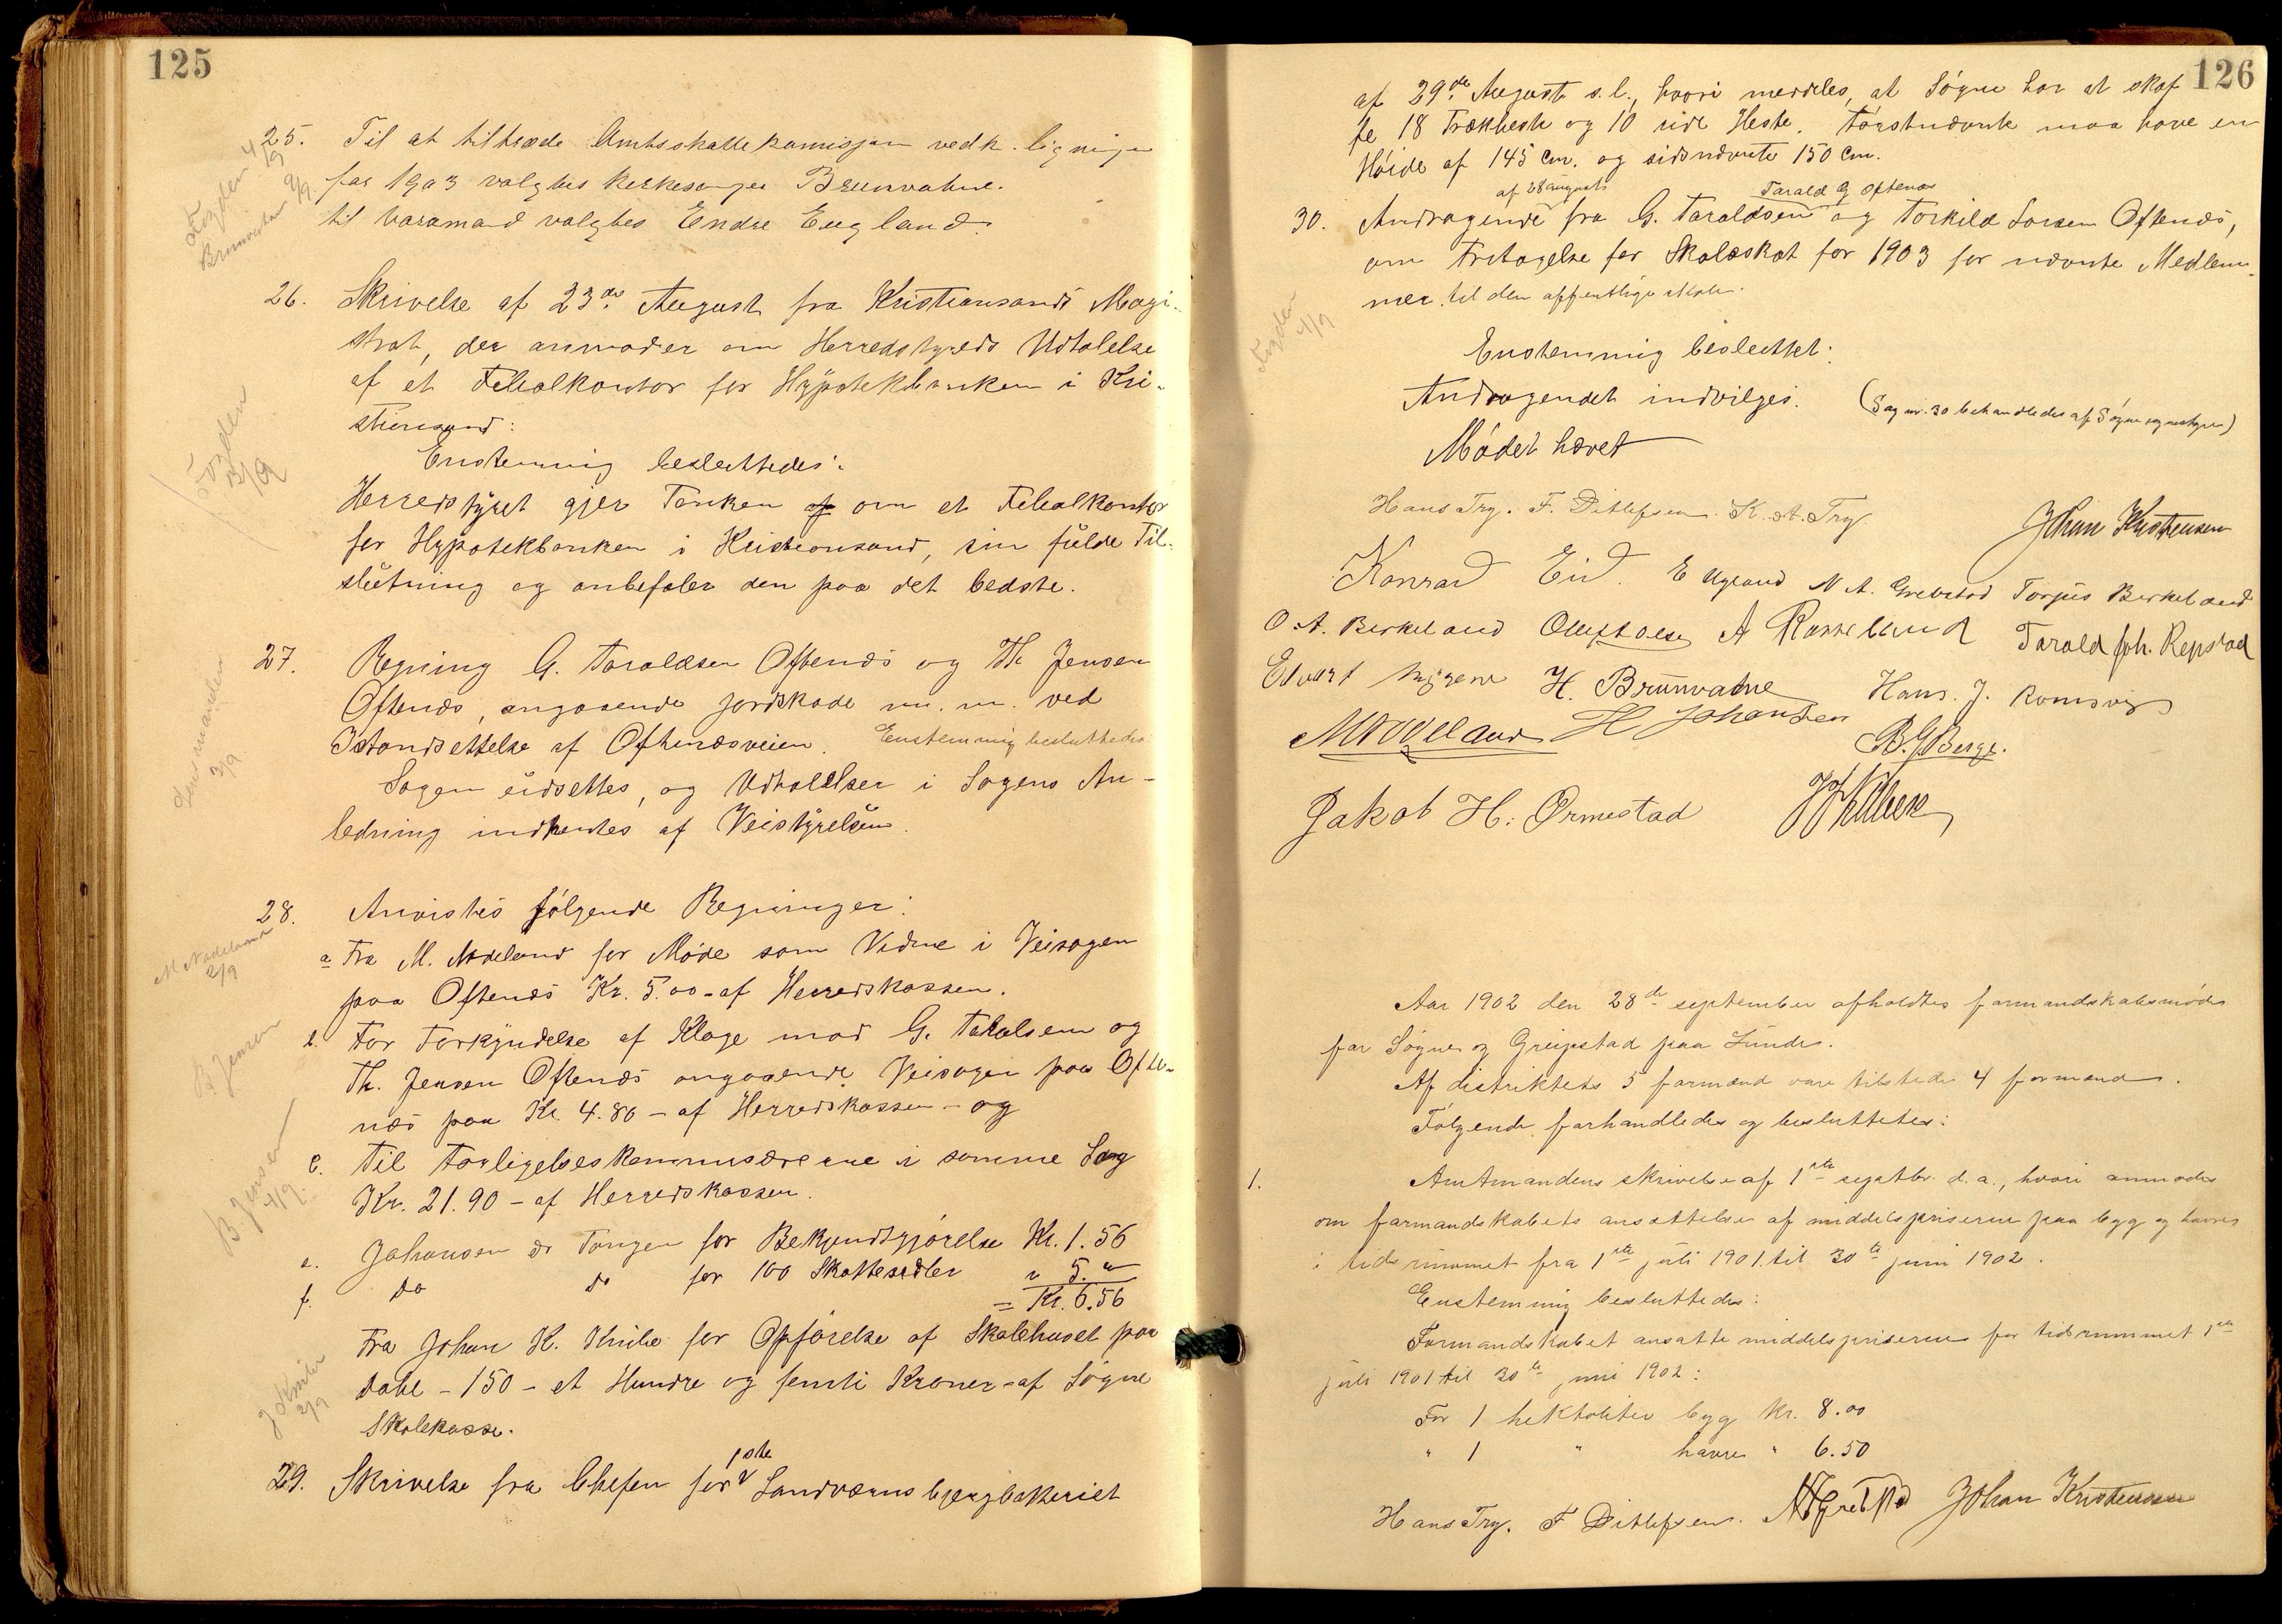 125
25. Til at tiltræde Amtsskattekomisjon vedk. ligningen
for 1903 valgtes kirkesanger Brunvatne.
til varamand valgtes Endre Eugland.
Fogden 4/9
Brunvatne 2/9.
26. Skrivelse af 23de August fra Kristiansands Magi-
strat, der anmoder om Herredstyrets Udtalelse
af et Filialkontor for Hypotekbanken i Kri-
stiansand:
Enstemmig besluttedes:
Fogden
3/9
Herredstyret gjer Tanken om et Filialkontor
for Hypotekbanken i Kristiansand, sin fulde Til-
slutning og anbefaler den paa det bedste.
27. Regning G. Taraldsen Oftenæs og Th Jensen
Oftenæs, angaaende jordskade m. m. ved
Istandsettelse af Oftenæsveien. Enstemmig besluttedes
Lensmanden
3/9
Sagen udsettes, og Udtalelser i Sagens An-
ledning indhentes af Veistyrelsen.
28. Anvistes følgende Regninger:
M Nodeland
2/9
a Fra M. Nodeland for Møde som Vidne i Veisagen
paa Oftenæs Kr. 5.00 - af Herredskassen.
b. For Forkyndelse af Klage mod G. Taralsen og
B. Jensen
Th. Jensen Oftenæs angaaende Veisagen paa Ofte-
næs paa Kr. 4.80 - af Herredskassen - og
c. Til Forligelseskommisærerne i samme Sag
B. Jensen
4/9.
Kr. 21.90 - af Herredskassen.
e. Johansen & Tangen for Bekjendtgjørelse Kr. 1.56
f. do do for 100 Skattesedler " 5. "
= Kr. 6.56
Fra Johan K. Knibe for Opførelse af Skolehuset paa
J Knibe
2/9
Dahl - 150 - et Hundre og femti Kroner - af Søgne
Skolekasse.
29. Skrivelse fra Chefen for 1ste Landværnsbjergbatteriet
126
af 29de August s. l., hvori meddeles, at Søgne har at skaf
fe 18 Trækheste og 10 ride Heste. Førstnævnte maa have en
Høide af 145 Cm. og sidsnævnte 150 Cm.
af 28 augusts Tarald G Oftenæs
30. Andragende fra G. Taraldsen og Torkild Larsen Oftenæs,
om Fritagelse for Skoleskat for 1903 for nævnte Medlem-
mer til den offentlige skole.
Fogden
4/9
Enstemmig besluttet:
Andragendet indvilges. (Sag nr. 30 behandledes af Søgne sognestyre)
Mødet hævet
Hans Try. F. Ditlefsen. K. A. Try. Johan Kristensen
Konrad Eid. E Ugland N A. Grebstad Torjus Birkeland
O. A. Birkeland Oluf Olsen A Rosseland Tarald Joh. Repstad
Edvart H. Brunvatne Hans. J. Romsvig
M Nodeland H Johansen B. G Berge.
Jakob H. Ørmestad
Aar 1902 den 28de september afholdtes formandskabsmøde
for Søgne og Greipstad paa Lunde.
Af distriktets 5 formænd vare tilstede 4 formænd.
Følgende forhandledes og besluttetes:
1. Amtmandens skrivelse af 1ste septbr. d. a., hvori anmodes
om formandskabets ansættelse af middelspriserne paa byg og havre
i tidsrummet fra 1ste juli 1901 til 30te juni 1902.
Enstemmig besluttedes:
Formandskabet ansatte middelspriserne for tidsrummet 1ste
juli 1901 til 30te juni 1902:
For 1 hektoliter byg Kr. 8.00
" 1 " havre " 6.50
Hans Try. F Ditlefsen. N A Grebstad Johan Kristensen